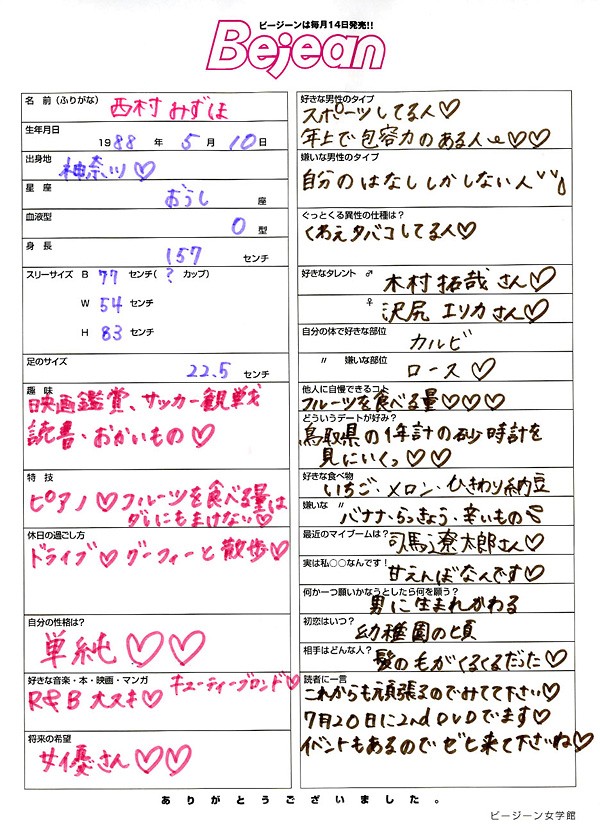 ビージーンは毎月14日発売!!
Bejean
名 前(ふりがな) 西村 みずほ
生年月日
1988 年 5 月 10 日
出身地
神奈川♡
星 座
おうし 座
血液型
O 型
身 長
157 センチ
スリーサイズ B 77 センチ( ? カップ)
W 54 センチ
H 83 センチ
足のサイズ
22.5 センチ
趣 味
映画鑑賞、サッカー観戦
読書・おかいもの♡
特 技
ピアノ♡フルーツを食べる量は
だれにもまけない♡
休日の過ごし方
ドライブ♡グーフィーと散歩♡
自分の性格は?
単純♡♡
好きな音楽・本・映画・マンガ
キューティーブロンド♡
R&B 大スキ♡
将来の希望
女優さん♡♡
好きな男性のタイプ
スポーツしてる人♡
年上で包容力のある人♡♡
嫌いな男性のタイプ
自分のはなししかしない人
ぐっとくる異性の仕種は?
くわえタバコしてる人♡
好きなタレント ♂ 木村拓哉さん♡
♀ 沢尻エリカさん♡
自分の体で好きな部位
カルビ
〃 嫌いな部位
ロース♡
他人に自慢できるコト
フルーツを食べる量♡♡♡
どういうデートが好み?
鳥取県の1年計の砂時計を
見にいくっ♡♡
好きな食べ物
いちご、メロン、ひきわり納豆
嫌いな 〃
バナナ、らっきょう、辛いもの
最近のマイブームは? 司馬遼太郎さん♡
実は私○○なんです! 甘えんぼなんです♡
何か一つ願いかなうとしたら何を願う?
男に生まれかわる
初恋はいつ? 幼稚園の頃
相手はどんな人? 髪の毛がくるくるだった♡
読者に一言
これからも頑張るのでみてて下さい♡
7月20日に2nd DVDでます♡
イベントもあるのでゼヒ来て下さいね♡
ありがとうございました。
ビージーン女学館